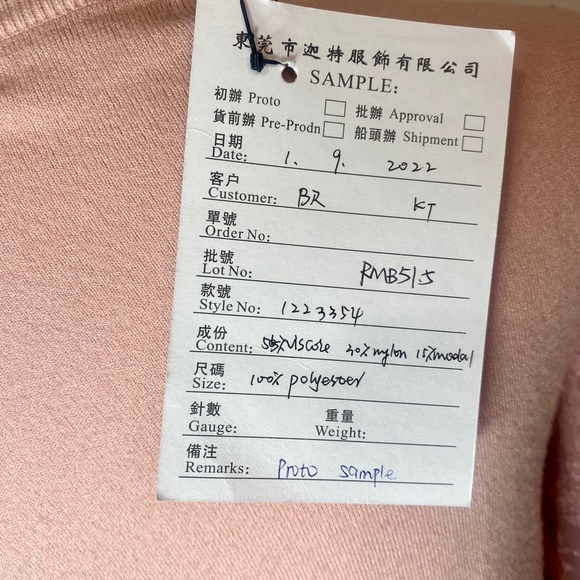 東莞市迦特服飾有限公司
SAMPLE:
初辦 Proto 批辦 Approval
貨前辦 Pre-Prodn 船頭辦 Shipment
日期
Date: 1. 9. 2022
客户
Customer: BR KT
單號
Order No:
批號
Lot No: RMB51.5
款號
Style No: 1223354
成份
Content: 55% Viscose 30% nylon 15% modal
尺碼
Size: 100% polyester
針數 重量
Gauge: Weight:
備注
Remarks: Proto sample